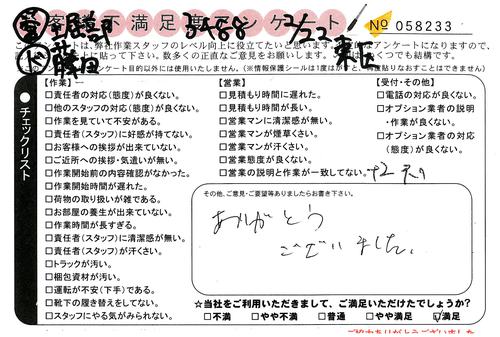 お客様不満足度アンケート
3488 2/22 東区
No 058233
藤田
このアンケートは、弊社作業スタッフのレベル向上に役立てたいと思います。
下さい。数多くのご正直なご意見をお願いします。
アンケート目的以外には使用いたしません。(※情報保護シールは1度はがすと、再度貼りなおすことはできません)
チェックリスト
【作業】
□責任者の対応(態度)が良くない。
□他のスタッフの対応(態度)が良くない。
□作業を見ていて不安がある。
□責任者(スタッフ)に好感が持てない。
□お客様への挨拶が出来ていない。
□ご近所への挨拶・気遣いが無い。
□作業開始前の内容確認がなかった。
□作業開始時間が遅れた。
□荷物の取り扱いが雑である。
□お部屋の養生が出来ていない。
□作業時間が長すぎる。
□責任者(スタッフ)に清潔感が無い。
□責任者(スタッフ)が汗くさい。
□トラックが汚い。
□梱包資材が汚い。
□運転が不安(下手)である。
□靴下の履き替えをしてない。
□スタッフにやる気がみられない。
【営業】
□見積もり時間に遅れた。
□見積もり時間が長い。
□営業マンに清潔感が無い。
□営業マンが煙草くさい。
□営業マンが汗くさい。
□営業態度が良くない。
□営業の説明と作業が一致してない。
【受付・その他】
□電話の対応が良くない。
□オプション業者の説明
・作業が良くない。
□オプション業者の対応
(態度)が良くない。
その他、ご意見・ご要望等ありましたらお書き下さい。
ありがとう
ございました。
☆当社をご利用いただきまして、ご満足いただけたでしょうか?
□不満 □やや不満 □普通 □やや満足 ☑満足
ご協力ありがとうございました